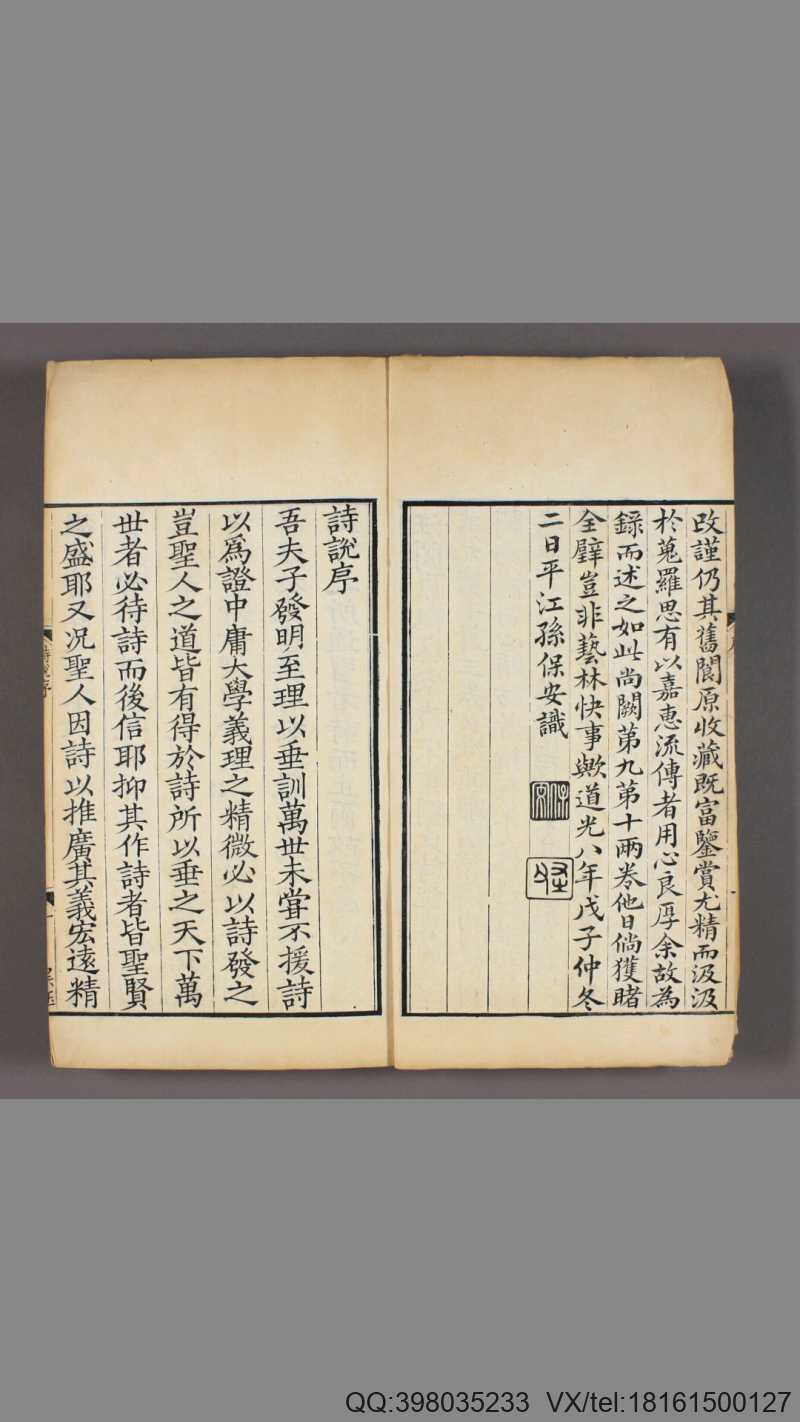 改謹仍其舊閬原收藏既富鑒賞尤精而汲汲
於蒐羅思有以嘉惠流傳者用心良厚余故為
錄而述之如此尚闕第九第十兩卷他日倘獲睹
全璧豈非藝林快事歟道光八年戊子仲冬
二日平江孫保安識
詩說序
吾夫子發明至理以垂訓萬世未甞不援詩
以爲證中庸大學義理之精微必以詩發之
豈聖人之道皆有得於詩所以垂之天下萬
世者必待詩而後信耶抑其作詩者皆聖賢
之盛耶又况聖人因詩以推廣其義宏遠精
詩說序
QQ:398035233 VX/tel:18161500127